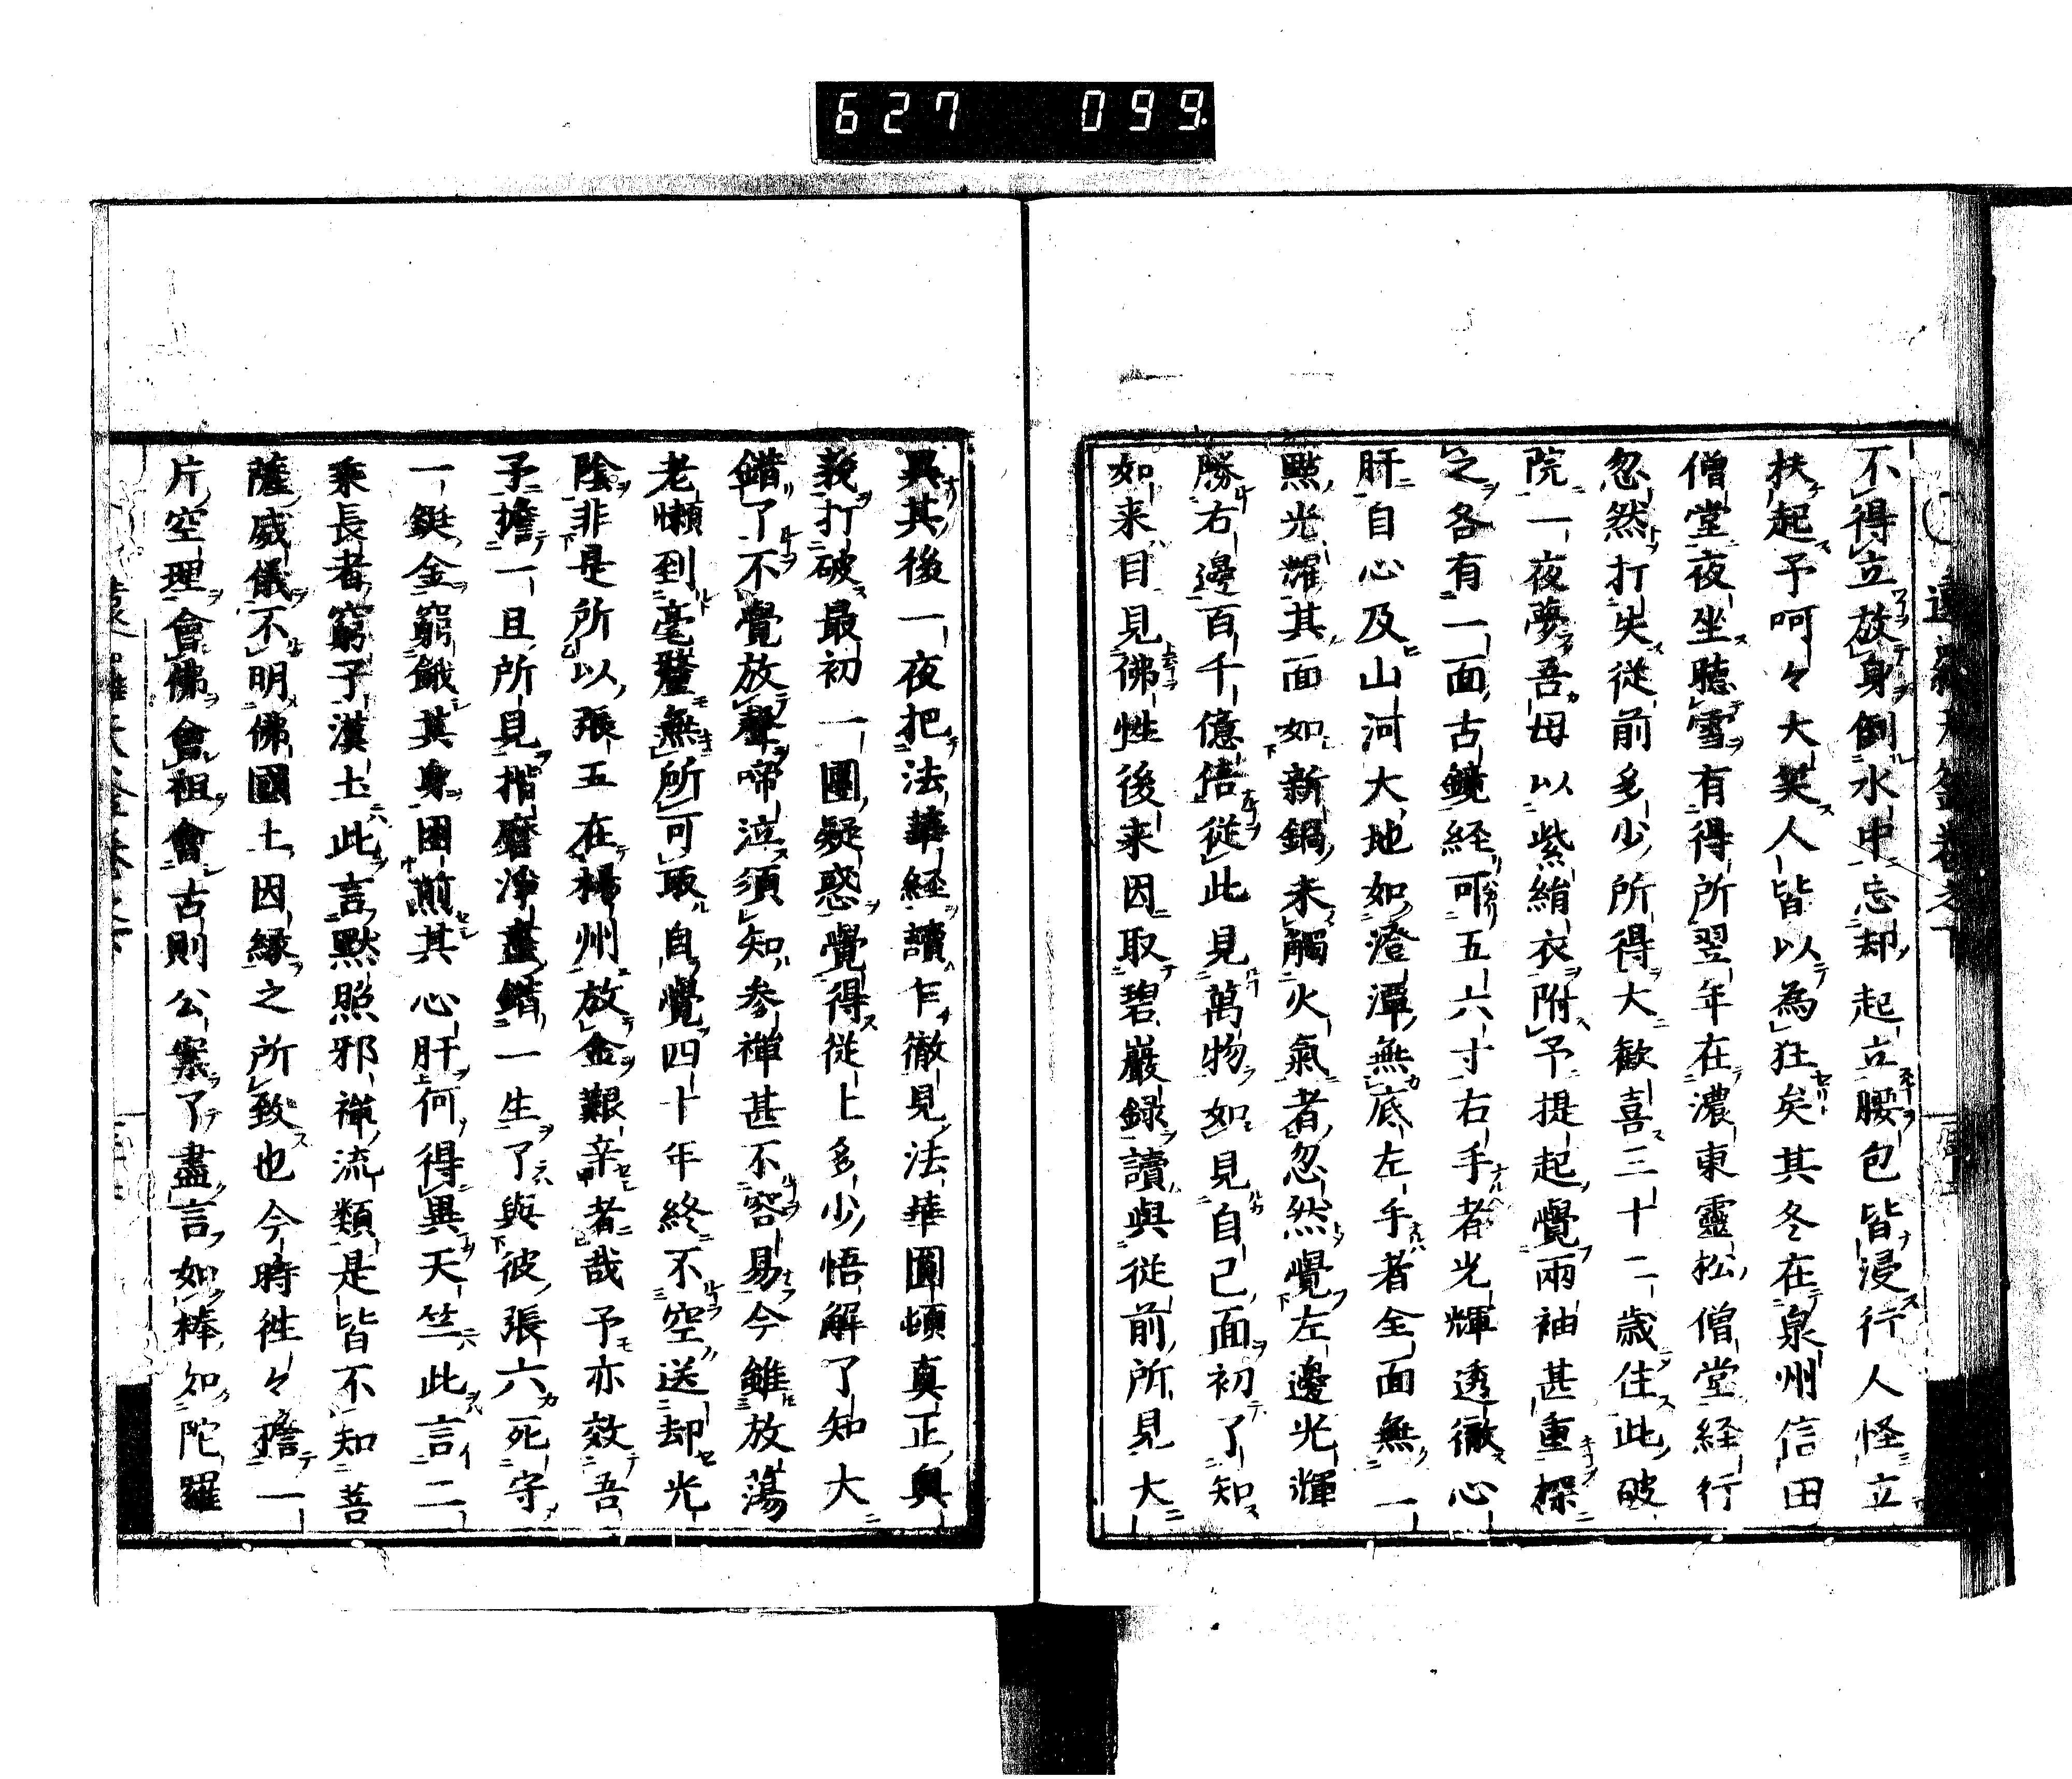 627 099
不得立放身倒水中忘却起立腰包皆浸行人怪立
扶起予呵々大笑人皆以為狂矣其冬在泉州信田
僧堂夜坐聴雪有得所翌年在濃東靈松僧堂経行
忽然打失從前多少所得大歓喜三十二歳住此破
院一夜夢吾母以紫絹衣附予提起覺兩袖甚重探
之各有一面古鏡経可五六寸右手者光輝透徹心
肝自心及山河大地如澄潭無底左手者全面無一
點光耀其面如新鍋未觸火氣者忽然覺左邊光輝
勝右邊百千億倍従此見萬物如見自己面初了知
如来目見佛性後来因取碧巌録讀與従前所見大
異其後一夜把法華経讀乍徹見法華圓頓真正奥
義打破最初一團疑惑覺得従上多少悟解了知大
錯了不覺放聲啼泣須知参禅甚不容易今雖放蕩
老懶到毫釐無所可取自覺四十年終不空送却光
陰非是所以張五在楊州放金艱辛者哉予亦效吾
子擔一且所見揩磨淨盡錯一生了與彼張六死守
一鋌金窮餓其身困煎其心肝何得異天竺此言二
乘長者窮子漢土此言黙照邪禅流類是皆不知菩
薩威儀不明佛國土因縁之所致也今時徃々擔一
片空理會佛會祖會古則公案了盡言如棒如陀羅